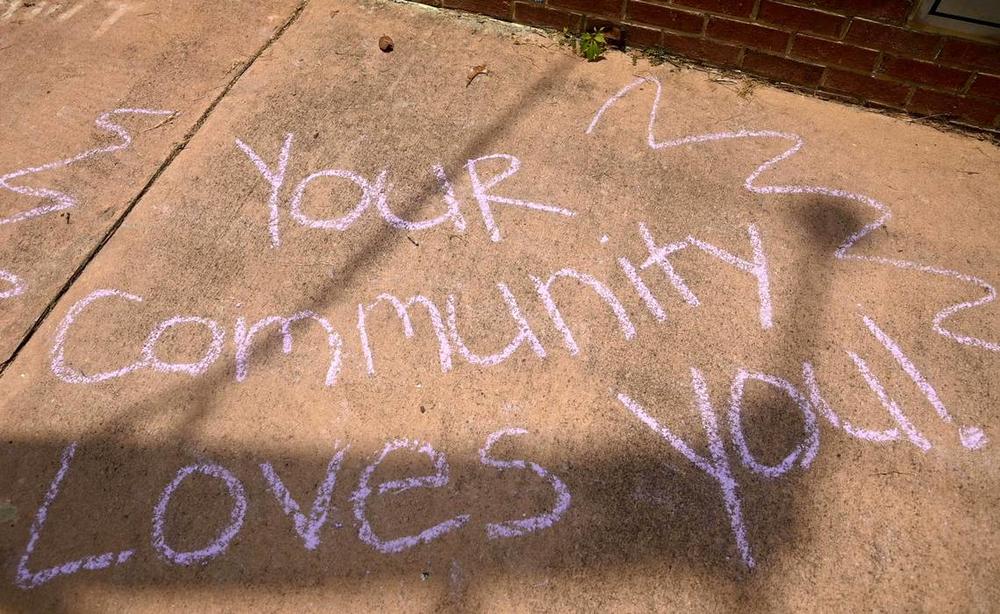 Your
Community
Loves you!